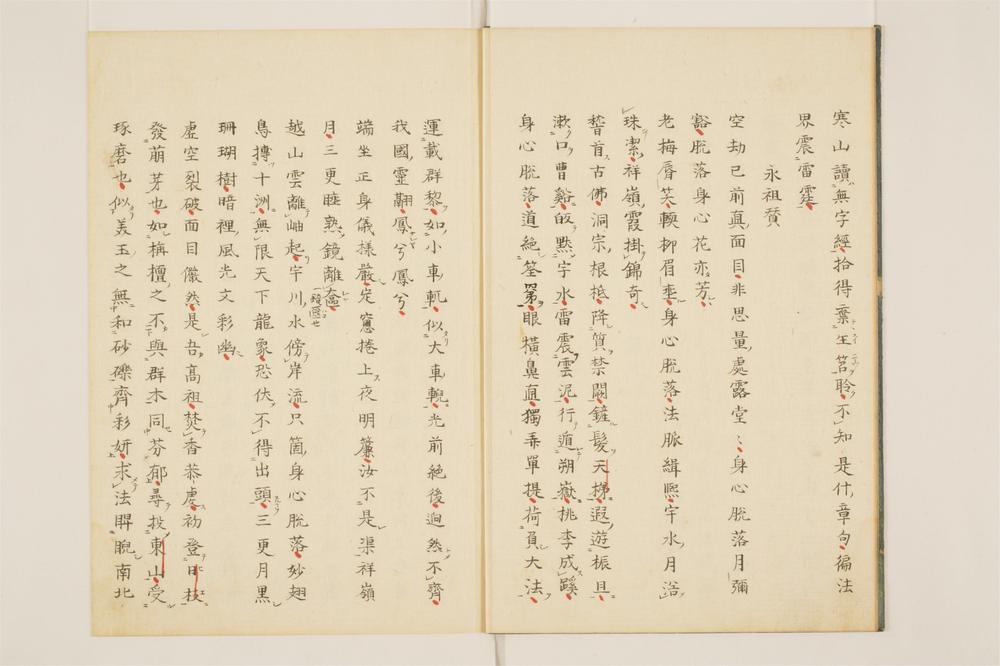 寒山讀無字經拾得棄生苕聆不知是什章句徧法
界震雷霆
永祖賛
空劫已前真面目非思量處露堂〻身心脫落月彌
豁脫落身心花亦芳
老梅脣笑輭柳眉垂身心脫落法脈緝熙宇水月浩
珠潔祥嶺霞掛錦奇
稽首古佛洞宗根柢降質禁闕鏟髮天梯遐遊振旦
漱口曹谿皈黙宇水雷震雲泥行遁朔嶽桃李成蹊
身心脫落道絶筌罤眼橫鼻直獨弄單提荷負大法
運載群黎如小車軏似大車輗光前絶後迥然不齊
我國靈翮鳳兮鳳兮
端坐正身儀樣嚴定窻捲上夜明簾汝不是渠祥嶺
月三更睡熟鏡離奩
越山雲離岫起宇川水傍岸流只箇身心脫落妙翅
鳥摶十洲無限天下龍象恐伏不得出頭三更月黒
珊瑚樹暗裡風光文彩幽
虛空裂破面目儼然是吾高祖焚香恭處初登日枝
發萠芳也如栴檀之不與群木同芬郁尋投東山受
琢磨也似美玉之無和砂礫齊彩妍求法睥睨南北